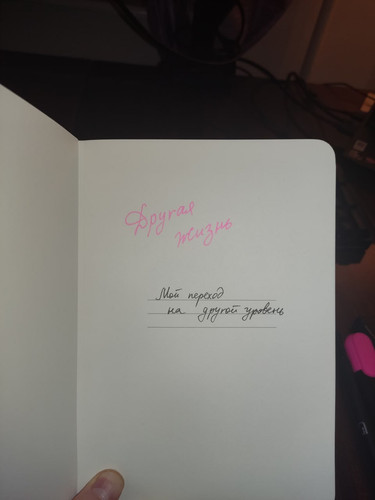 Другая
жизнь
Мой переход
на другой уровень